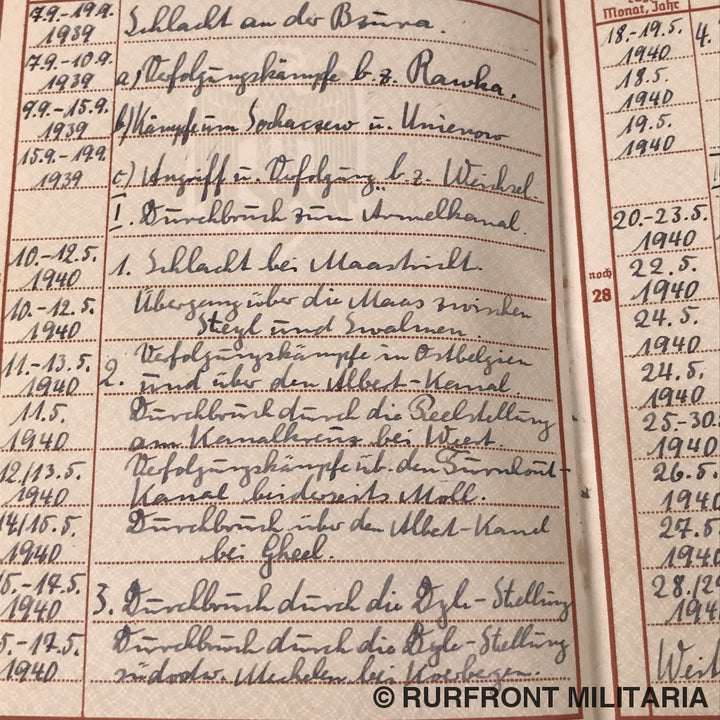 7.9.-19.9.
1939
Schlacht an der Bzura.
7.9.-10.9.
1939
a) Verfolgungskämpfe b. z. Rawka.
9.9.-15.9.
1939
b) Kämpfe um Sochaczew u.
15.9.-19.9.
1939
c) Angriff u. Verfolgung b. z. Weichsel.
I. Durchbruch zum Ärmelkanal.
10.-12.5.
1940
1. Schlacht bei Maastricht.
10.-12.5.
1940
Übergang über die Maas zwischen
Steyl und Swalmen.
11.-13.5.
1940
2. Verfolgungskämpfe in Ostbelgien
und über den Albert-Kanal.
11.5.
1940
Durchbruch durch die Peelstellung
am Kanalkreuz bei Weert.
12/13.5.
1940
Verfolgungskämpfe üb. den Turnhout-
Kanal beiderseits Moll.
14/15.5.
1940
Durchbruch über den Albert-Kanal
bei Gheel.
5.-17.5.
1940
3. Durchbruch durch die Dyle-Stellung
5.-17.5.
1940
Durchbruch durch die Dyle-Stellung
Mechelen bei
Monat, Jahr
18.-19.5.
1940
4.
18.5.
1940
19.5.
1940
20.-23.5.
1940
noch
28
22.5.
1940
24.5.
1940
24.5.
1940
25.-30.
1940
26.5.
1940
27.5.
1940
28./2
194
© RURFRONT MILITARIA